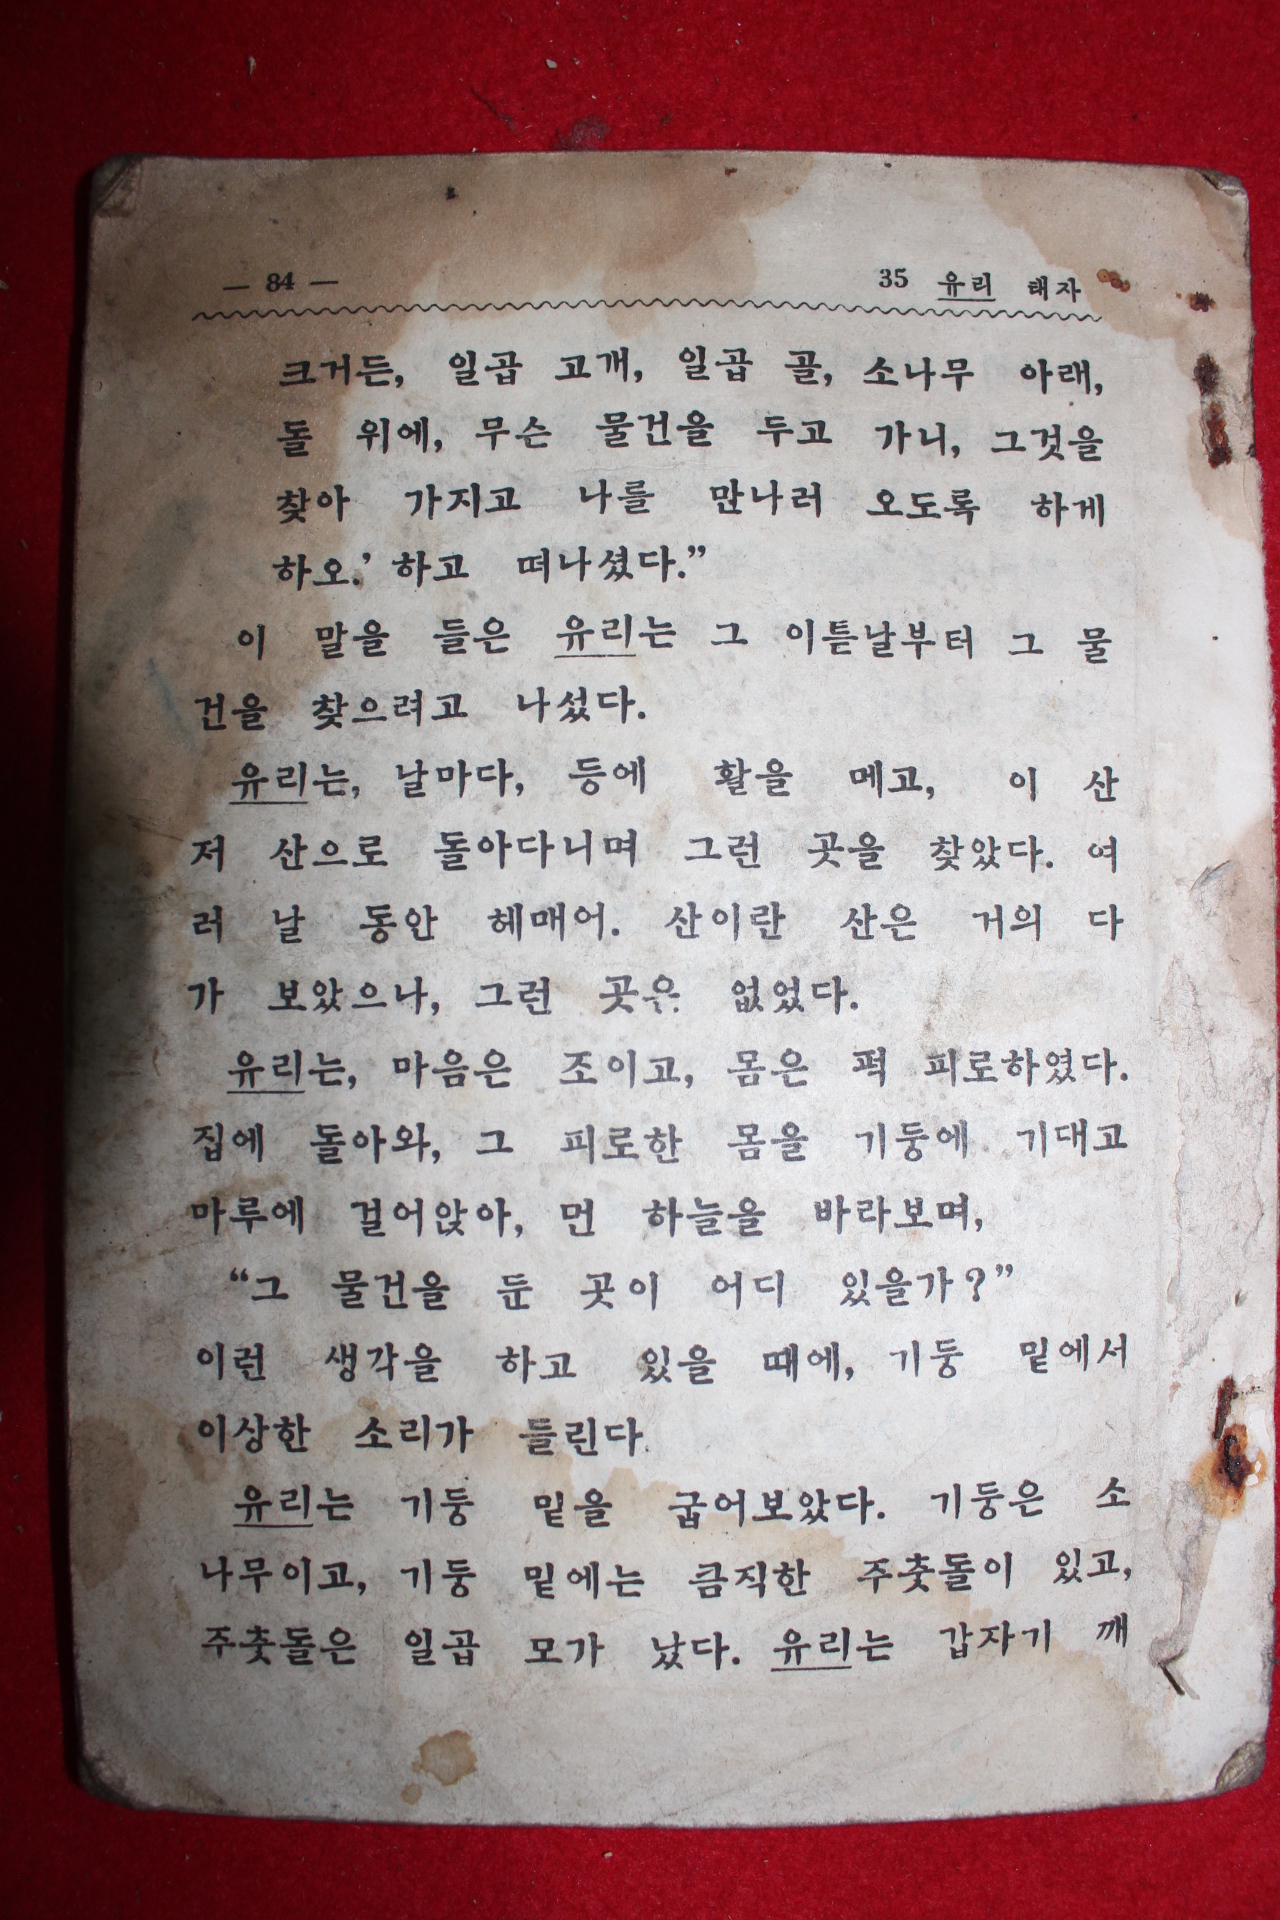 — 84 —
35 유리 태자
크거든, 일곱 고개, 일곱 골, 소나무 아래,
돌 위에, 무슨 물건을 두고 가니, 그것을
찾아 가지고 나를 만나러 오도록 하게
하오.’ 하고 떠나셨다.”
이 말을 들은 유리는 그 이튿날부터 그 물
건을 찾으려고 나섰다.
유리는, 날마다, 등에 활을 메고, 이 산
저 산으로 돌아다니며 그런 곳을 찾았다. 여
러 날 동안 헤매어. 산이란 산은 거의 다
가 보았으나, 그런 곳은 없었다.
유리는, 마음은 조이고, 몸은 퍽 피로하였다.
집에 돌아와, 그 피로한 몸을 기둥에 기대고
마루에 걸어앉아, 먼 하늘을 바라보며,
“그 물건을 둔 곳이 어디 있을가?”
이런 생각을 하고 있을 때에, 기둥 밑에서
이상한 소리가 들린다.
유리는 기둥 밑을 굽어보았다. 기둥은 소
나무이고, 기둥 밑에는 큼직한 주춧돌이 있고,
주춧돌은 일곱 모가 났다. 유리는 갑자기 깨